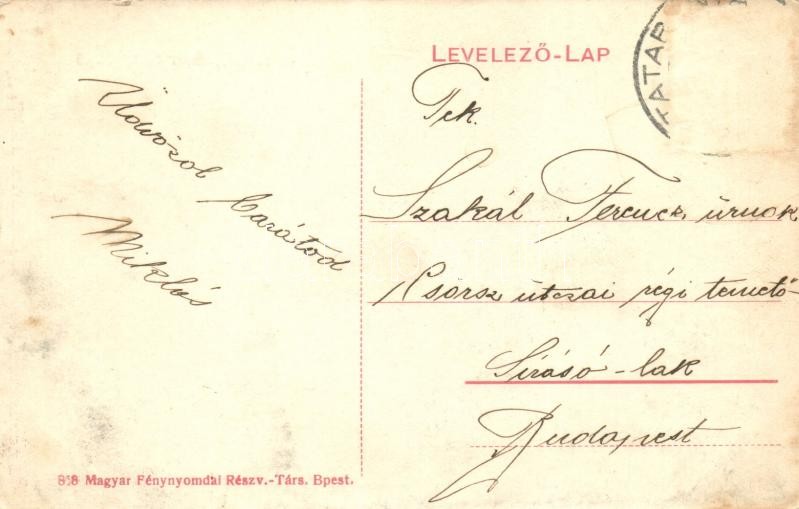 LEVELEZŐ-LAP
ATAR
Üdvözöl barátod
Miklós
Tek.
Szakál Ferencz úrnok
Csörsz útczai régi temető-
Sírásó-lak
Budapest
Magyar Fénynyomdai Részv.-Társ. Bpest.